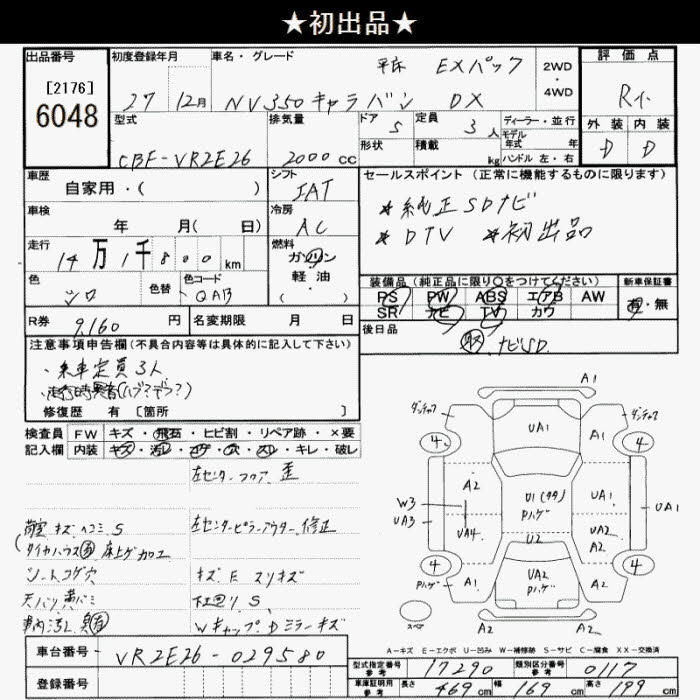 ★初出品★
出品番号
[2176]
6048
初度登録年月
27 12月
車名・グレード
平床 EXパック
NV350キャラバン DX
2WD
・
4WD
評価点
R
外装 内装
D D
型式
CBF-VR2E26
排気量
2000 cc
ドア 5
形状
定員 3 人
積載 kg
ディーラー・並行
モデル
年式 年
ハンドル 左・右
車歴
自家用・( )
シフト
IAT
車検
年 月( 日)
冷房
AC
走行
14万1千800 km
燃料
ガソリン
軽油
( )
色
シロ
色替
色コード
QAB
R券 9,160 円
名変期限 月 日
セールスポイント (正常に機能するものに限ります)
*純正SDナビ
*DTV *初出品
装備品 (純正品に限り○をつけてください)
新車保証書
PS PW ABS エアB AW
SR ナビ TV カワ
有・無
後日品
ナビSD.
注意事項申告欄 (不具合内容等は具体的に記入して下さい)
・乗車定員3人
・走行時異音(ハブ?デフ?)
修復歴 有 [箇所 ]
検査員 FW キズ・飛石・ヒビ割・リペア跡・×要
記入欄 内装 キズ・汚レ・コゲ・穴・スレ・キレ・破レ
左センターフロア 歪
荷室 キズ ヘコミ S
左センターピラーアウター 修正
(タイヤハウス 床上ゲ加工
シートコゲ穴
キズ E スリキズ
天バリ黄バミ
下回り S.
車内汚レ
Wキャップ・Dミラーキズ
車台番号 VR2E26-029580
登録番号
A1
ダンチャク ダンチャク
4 UA1 A1 4
A2
W3
UA3
UA4
U1(タタ)
Pハゲ
UA1
UA1
U2
UA2
A2
4 4
Pハゲ
A1
UA2
Pハゲ
A2
スペア
A2 A2
A-キズ E-エクボ U-凹み W-補修跡 S-サビ C-腐食 XX-交換済
型式指定番号
参考
17290
類別区分番号
参考
0117
車庫証明用
参考
長さ 469 cm 幅 169 cm 高さ 199 cm